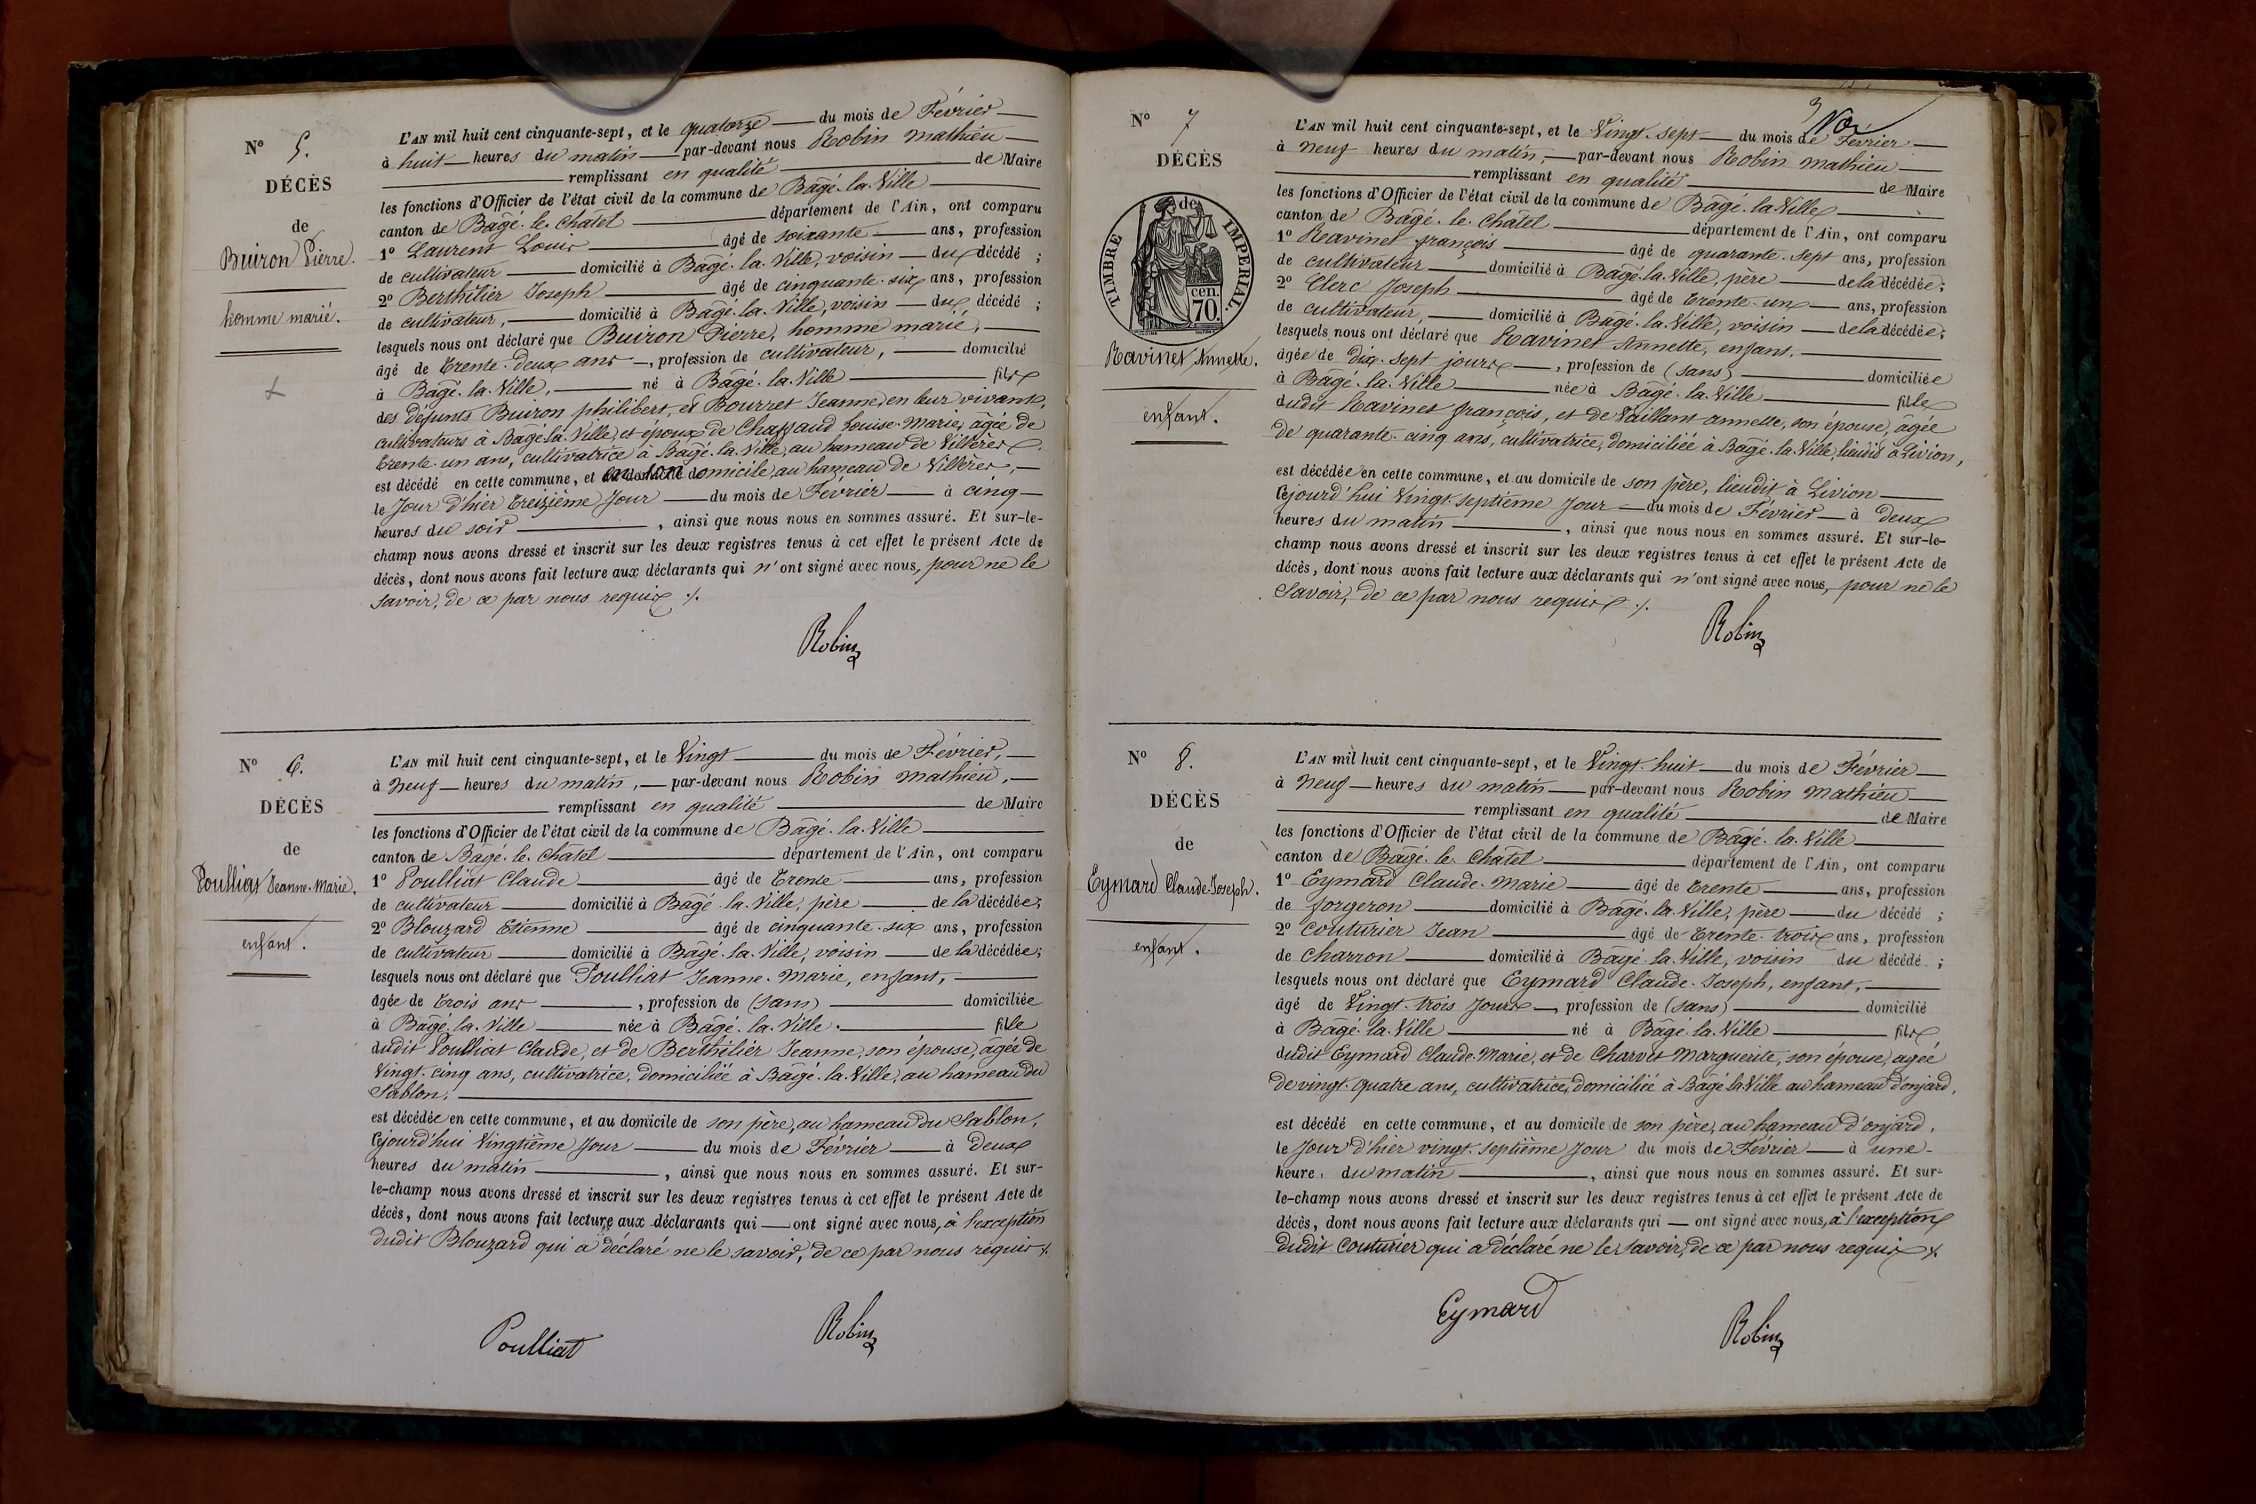 N° 5.
DÉCÈS
de
Buiron Pierre.
homme marié.
L'AN mil huit cent cinquante-sept, et le quatorze du mois de Février
à huit heures du matin par-devant nous Robin Mathieu
remplissant en qualité de Maire
les fonctions d'Officier de l'état civil de la commune de Bâgé-la-Ville
canton de Bâgé-le-Châtel département de l'Ain, ont comparu
1° Laurent Louis âgé de soixante ans, profession
de cultivateur domicilié à Bâgé-la-Ville, voisin du décédé ;
2° Berthilier Joseph âgé de cinquante-six ans, profession
de cultivateur, domicilié à Bâgé-la-Ville, voisin du décédé ;
lesquels nous ont déclaré que Buiron Pierre, homme marié,
âgé de trente-deux ans, profession de cultivateur, domicilié
à Bâgé-la-Ville, né à Bâgé-la-Ville fils
des défunts Buiron philibert, et Bourret Jeanne, en leur vivant,
cultivateurs à Bâgé-la-Ville, et époux de Chassaud Louise-Marie, âgée de
trente-un ans, cultivatrice à Bâgé-la-Ville, au hameau de Villères
est décédé en cette commune, et en son domicile, au hameau de Villères,
le Jour d'hier treizième Jour du mois de Février à cinq
heures du soir, ainsi que nous nous en sommes assuré. Et sur-le-
champ nous avons dressé et inscrit sur les deux registres tenus à cet effet le présent Acte de
décès, dont nous avons fait lecture aux déclarants qui n'ont signé avec nous, pour ne le
savoir, de ce par nous requis ./.
Robin
N° 6.
DÉCÈS
de
Poulliat Jeanne-Marie.
enfant.
L'AN mil huit cent cinquante-sept, et le Vingt du mois de Février,
à Neuf heures du matin, par-devant nous Robin Mathieu,
remplissant en qualité de Maire
les fonctions d'Officier de l'état civil de la commune de Bâgé-la-Ville
canton de Bâgé-le-Châtel département de l'Ain, ont comparu
1° Poulliat Claude âgé de trente ans, profession
de cultivateur domicilié à Bâgé-la-Ville, père de la décédée ;
2° Blouzard Etienne âgé de cinquante-six ans, profession
de cultivateur domicilié à Bâgé-la-Ville, voisin de la décédée ;
lesquels nous ont déclaré que Poulliat Jeanne-Marie, enfant,
âgée de trois ans, profession de (sans) domiciliée
à Bâgé-la-Ville née à Bâgé-la-Ville. fille
dudit Poulliat Claude, et de Berthilier Jeanne, son épouse, âgée de
Vingt-cinq ans, cultivatrice, domiciliée à Bâgé-la-Ville, au hameau du
Sablon,
est décédée en cette commune, et au domicile de son père, au hameau du Sablon,
cejourd'hui Vingtième Jour du mois de Février à deux
heures du matin, ainsi que nous nous en sommes assuré. Et sur-
le-champ nous avons dressé et inscrit sur les deux registres tenus à cet effet le présent Acte de
décès, dont nous avons fait lecture aux déclarants qui ont signé avec nous, à l'exception
dudit Blouzard qui a déclaré ne le savoir, de ce par nous requis ./.
Poulliat
Robin
N° 7
DÉCÈS
de
TIMBRE IMPERIAL.
70 cen.
Ravinet Annette.
enfant.
L'AN mil huit cent cinquante-sept, et le Vingt-sept du mois de Février
à neuf heures du matin, par-devant nous Robin Mathieu
remplissant en qualité de Maire
les fonctions d'Officier de l'état civil de la commune de Bâgé-la-Ville
canton de Bâgé-le-Châtel département de l'Ain, ont comparu
1° Ravinet françois âgé de quarante-sept ans, profession
de cultivateur domicilié à Bâgé-la-Ville, père de la décédée ;
2° Clerc Joseph âgé de trente-un ans, profession
de cultivateur, domicilié à Bâgé-la-Ville, voisin de la décédée ;
lesquels nous ont déclaré que Ravinet Annette, enfant,
âgée de dix-sept jours, profession de (sans) domiciliée
à Bâgé-la-Ville née à Bâgé-la-Ville fille
dudit Ravinet françois, et de Vaillant annette, son épouse, âgée
de quarante-cinq ans, cultivatrice, domiciliée à Bâgé-la-Ville, lieudit à Livion,
est décédée en cette commune, et au domicile de son père, lieudit à Livion
cejourd'hui Vingt-septième Jour du mois de Février à deux
heures du matin, ainsi que nous nous en sommes assuré. Et sur-le-
champ nous avons dressé et inscrit sur les deux registres tenus à cet effet le présent Acte de
décès, dont nous avons fait lecture aux déclarants qui n'ont signé avec nous, pour ne le
savoir, de ce par nous requis ./.
Robin
N° 8.
DÉCÈS
de
Eymard Claude-Joseph.
enfant.
L'AN mil huit cent cinquante-sept, et le Vingt-huit du mois de Février
à Neuf heures du matin par-devant nous Robin Mathieu
remplissant en qualité de Maire
les fonctions d'Officier de l'état civil de la commune de Bâgé-la-Ville
canton de Bâgé-le-Châtel département de l'Ain, ont comparu
1° Eymard Claude-Marie âgé de trente ans, profession
de forgeron domicilié à Bâgé-la-Ville, père du décédé ;
2° Couturier Jean âgé de trente-trois ans, profession
de charron domicilié à Bâgé-la-Ville, voisin du décédé ;
lesquels nous ont déclaré que Eymard Claude-Joseph, enfant,
âgé de Vingt-trois Jours, profession de (sans) domicilié
à Bâgé-la-Ville né à Bâgé-la-Ville fils
dudit Eymard Claude-Marie, et de Charvet Marguerite, son épouse, agée
de vingt-quatre ans, cultivatrice, domiciliée à Bâgé-la-Ville au hameau d'onjard,
est décédé en cette commune, et au domicile de son père, au hameau d'onjard,
le Jour d'hier vingt-septième Jour du mois de Février à une
heure du matin, ainsi que nous nous en sommes assuré. Et sur-
le-champ nous avons dressé et inscrit sur les deux registres tenus à cet effet le présent Acte de
décès, dont nous avons fait lecture aux déclarants qui ont signé avec nous, à l'exception
dudit Couturier qui a déclaré ne le savoir, de ce par nous requis ./.
Eymard
Robin